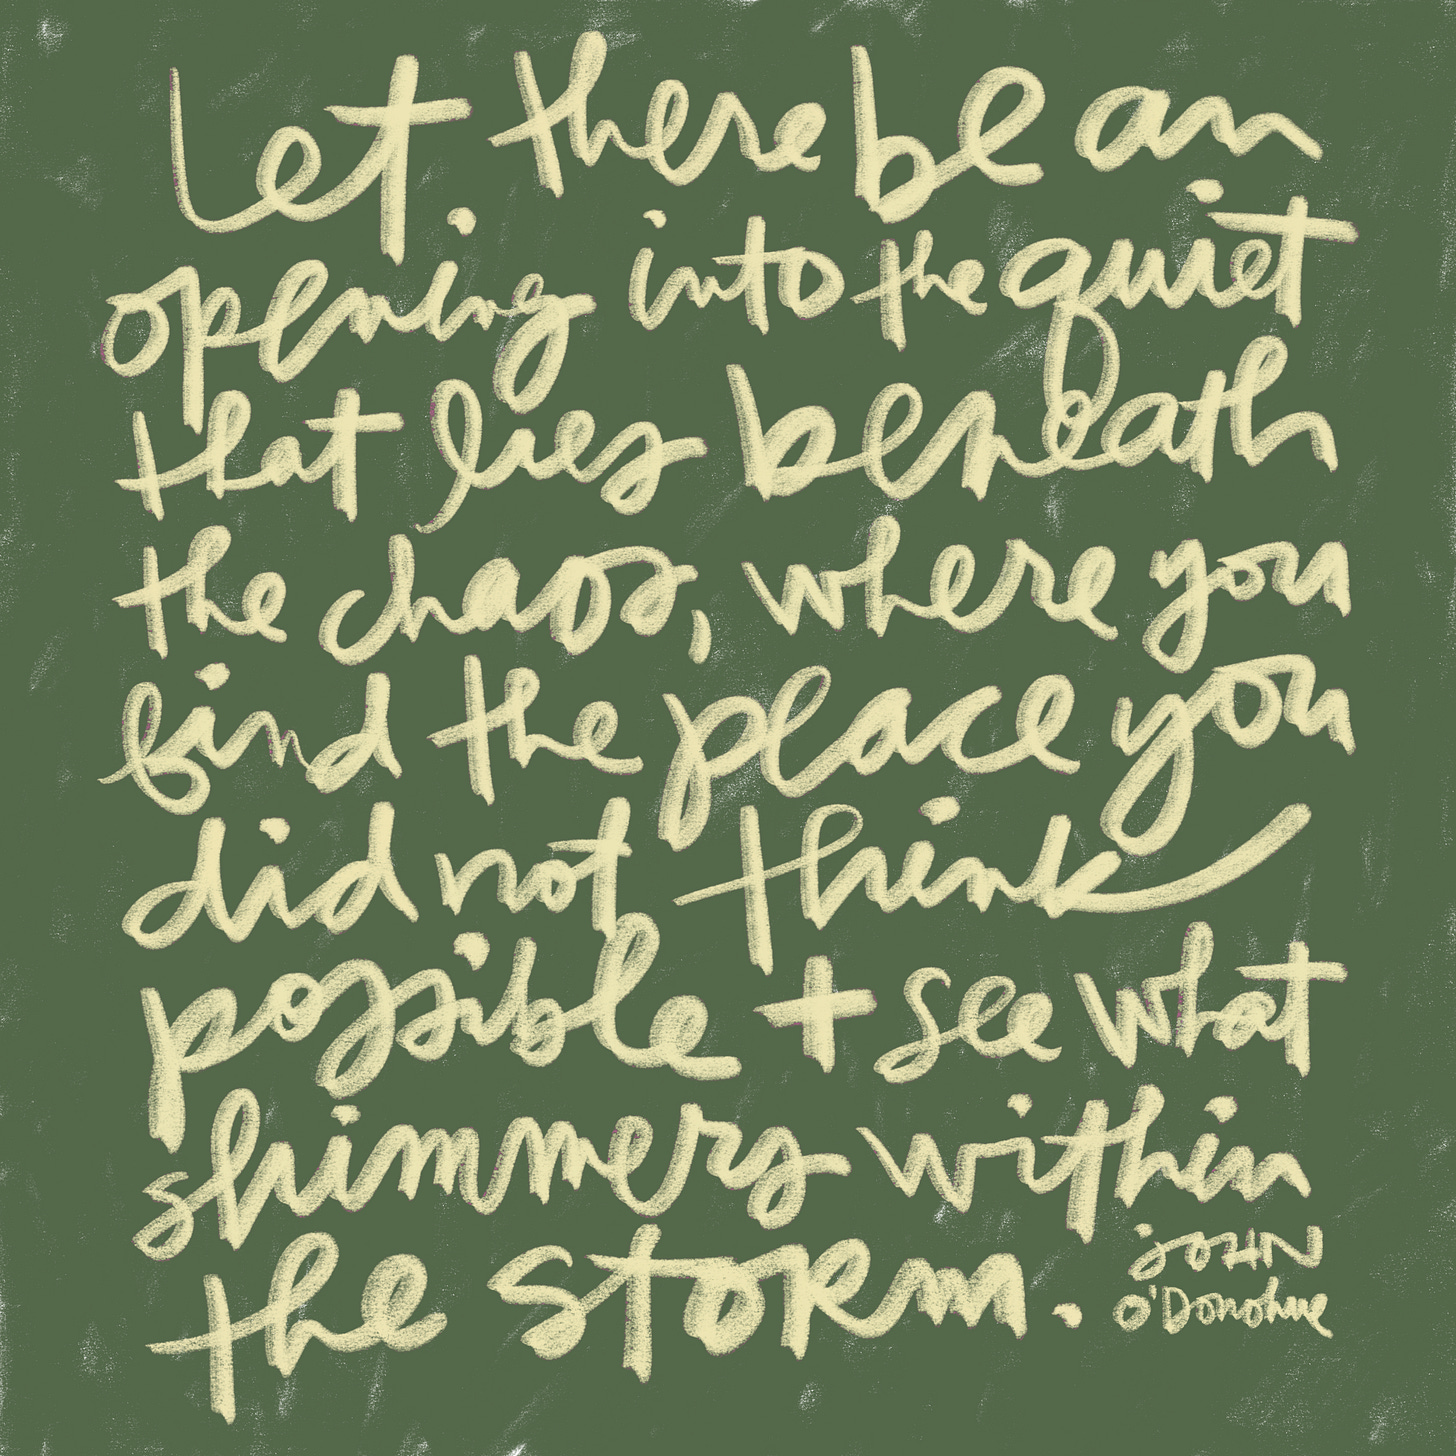 Let there be an
opening into the quiet
that lies beneath
the chaos, where you
find the peace you
did not think
possible + see what
shimmers within
the storm.
JOHN
O'Donohue